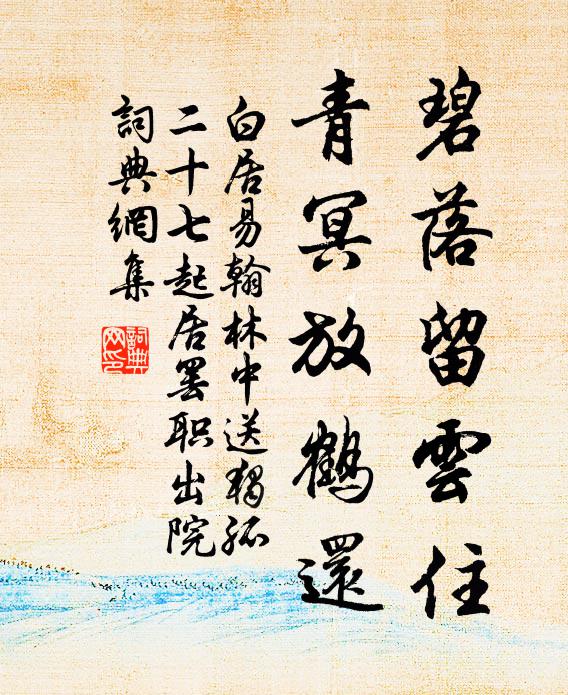 碧落留雲住
青冥放鶴還
白居易翰林中送獨孤
二十七起居罷职出院
詞典網集
詞典
网印